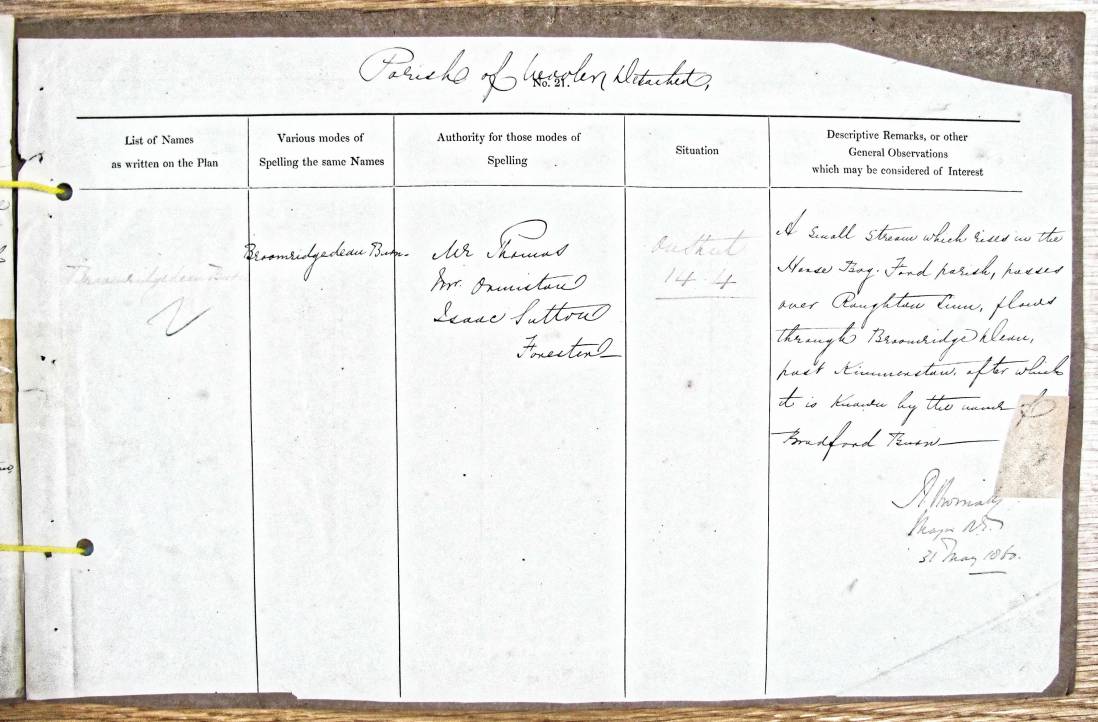 Parish of Wooler Detached,
No. 21.
List of Names
as written on the Plan
Various modes of
Spelling the same Names
Authority for those modes of
Spelling
Situation
Descriptive Remarks, or other
General Observations
which may be considered of Interest
Broomridgedean Burn
Broomridgedean Burn.
Mr. Thomas
Mr. Ormiston
Isaac Sutton
Forester
14-4
A small stream which rises in the
Horse Bog. Ford parish, passes
over Roughton Linn, flows
through Broomridge Dean,
past Kimmerston. after which
it is known by the name of
Bradford Burn
Major R.E.
31 May 1860.